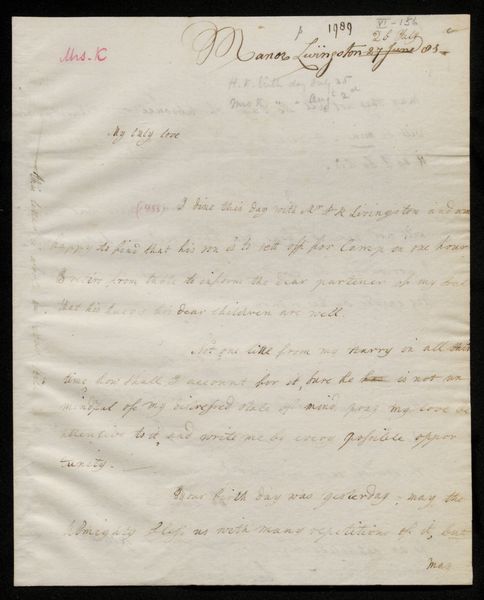 1989
VI-156
26 July
Mrs. K
Manor Livingston 27 June 83
H. K. birth day Aug 25
Mrs K " " Aug 2d
My Lucy love
I dine this day with Mr. R Livingston and am
happy to find that his son is to sett off for Camp in one hour
I retire from table to inform the dear partener of my soul
that his Lucy & his dear children are well.
Not one line from my Harry in all this
time how shall I account for it, sure he is not un
mindful of my distressed state of mind, pray my love be
attentive to it, and write me by every possible oppor
tunity.
Your birth day was yesterday, may the
Almighty bless us with many repetitions of it, but
may